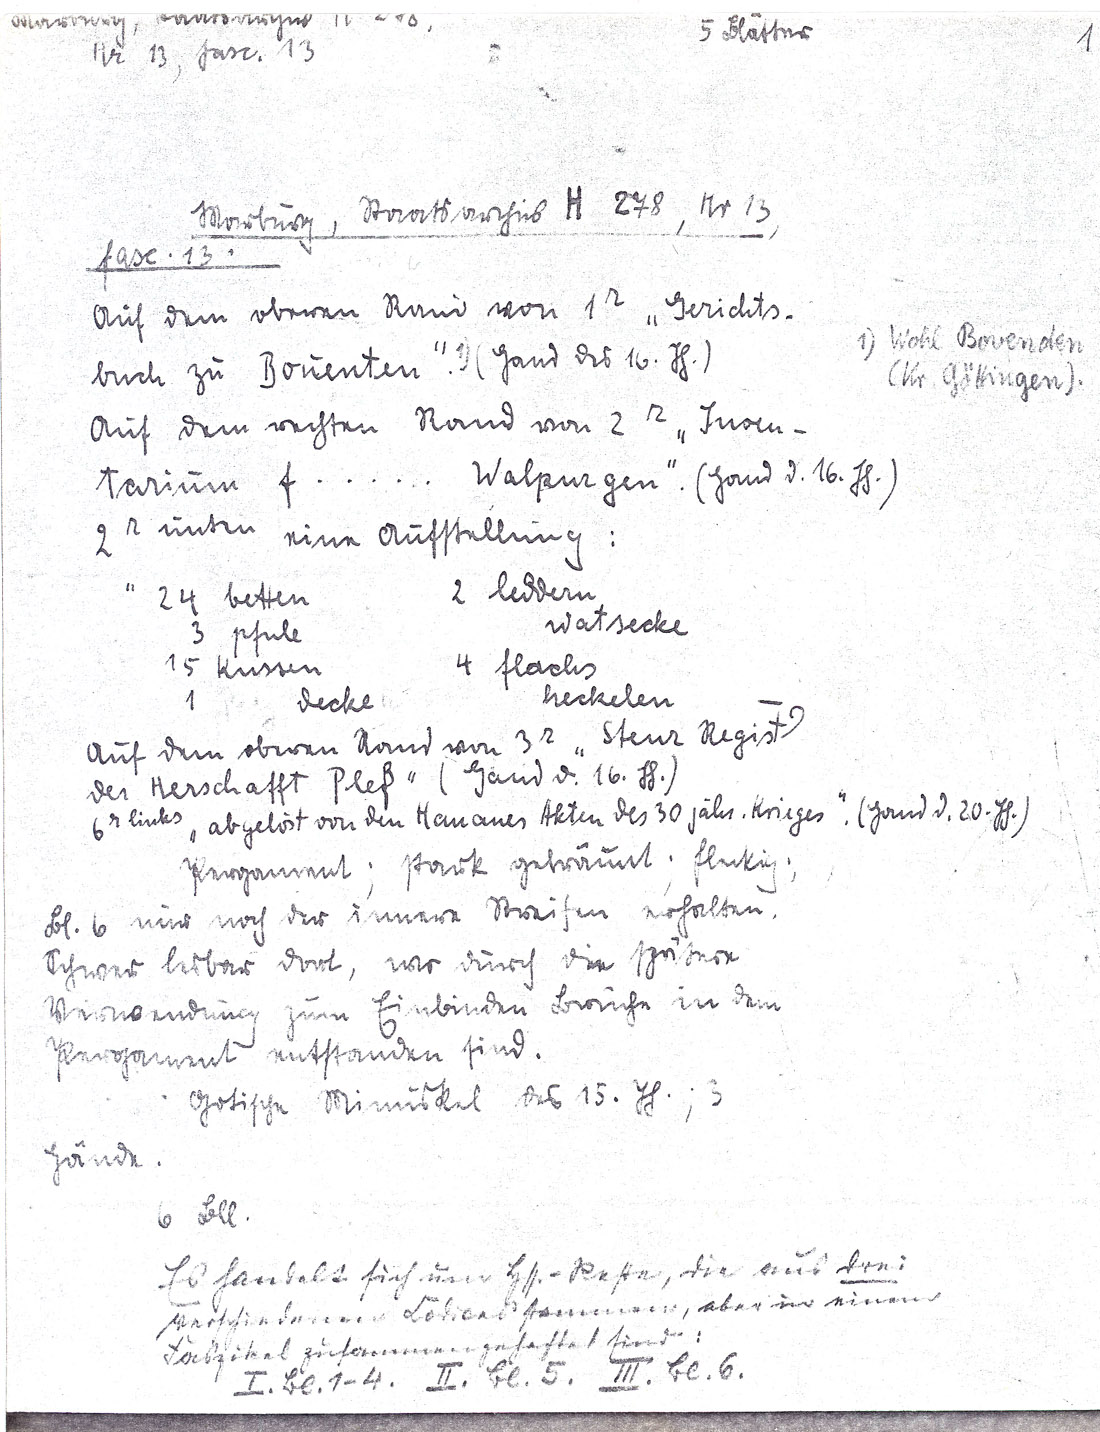 Marburg, Staatsarchiv H 278,
Nr 13, fasc. 13
5 Blätter
1
Marburg, Staatsarchiv H 278, Nr 13,
fasc. 13:
Auf dem oberen Rand von 1r „Gerichts-
buch zu Bouenten".1) (Hand des 16. Jh.)
1) Wohl Bovenden
(Kr. Göttingen).
Auf dem rechten Rand von 2r „Inuen-
tarium f ....... Walpurgen". (Hand d. 16. Jh.)
2r unten eine Aufstellung:
" 24 betten 2 leddern
3 pfule watsecke
15 kussen 4 flachs
1 decke heckelen
Auf dem oberen Rand von 3r „Steur Regist
der Herschafft Pleß" (Hand d. 16. Jh.)
6r links „abgelöst von den Hanauer Akten des 30 jähr. Krieges". (Hand d. 20. Jh.)
Pergament; stark gebräunt; fleckig;
Bl. 6 nur noch der innere Streifen erhalten.
Schwer lesbar dort, wo durch die spätere
Verwendung zum Einbinden Brüche in dem
Pergament entstanden sind.
Gotische Minuskel des 15. Jh.; 3
Hände.
6 Bll.
Es handelt sich um Hss.-Reste, die aus drei
verschiedenen Codices stammen, aber in einem
Faszikel zusammengeheftet sind:
I. Bl. 1-4. II. Bl. 5. III. Bl. 6.